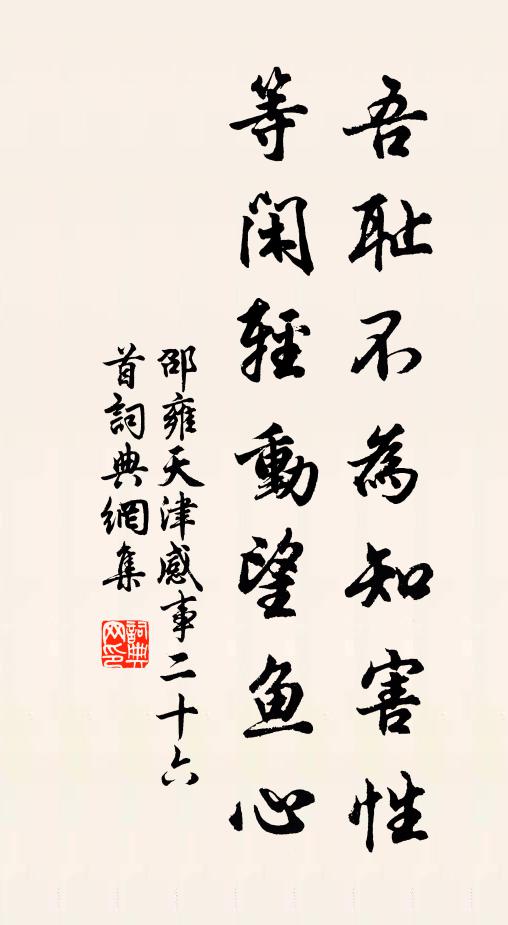 吾耻不為知害性
等閑輕動望魚心
邵雍天津感事二十六
首詞典網集
詞典
网印